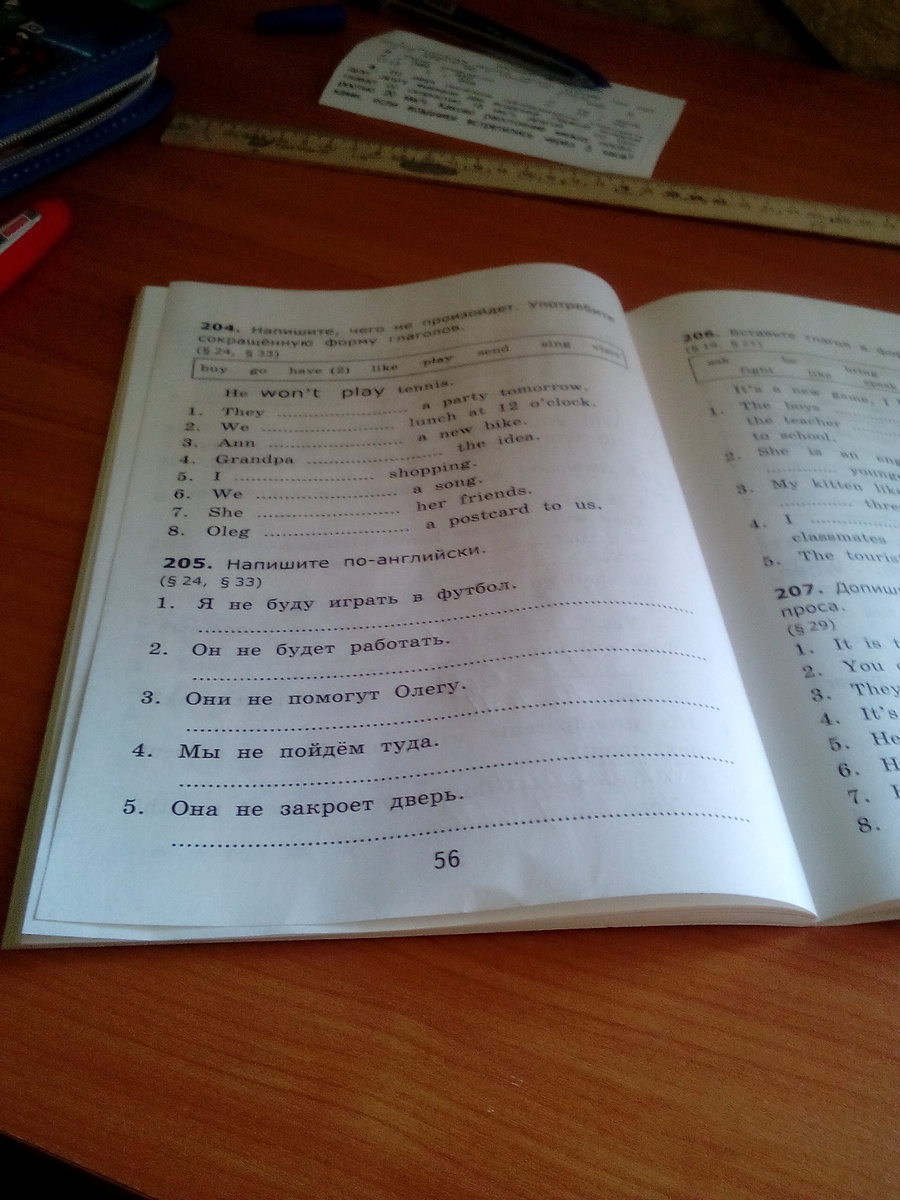 204. Напишите, чего не произойдет. Употребите
сокращённую форму глаголов.
(§ 24, § 33)
buy go have (2) like play send sing visit
He won't play tennis.
1. They .......... a party tomorrow.
2. We .......... lunch at 12 o'clock.
3. Ann .......... a new bike.
4. Grandpa .......... the idea.
5. I .......... shopping.
6. We .......... a song.
7. She .......... her friends.
8. Oleg .......... a postcard to us.
205. Напишите по-английски.
(§ 24, § 33)
1. Я не буду играть в футбол.
2. Он не будет работать.
3. Они не помогут Олегу.
4. Мы не пойдём туда.
5. Она не закроет дверь.
56
206. Вставьте глагол в
(§ 19, § 21)
ask be bring
fight like speak
It's a new game, I
1. The boys
the teacher
to school.
2. She is an
3. My kitten
4. I ..........
classmates
5. The
207.
(§ 29)
1. It is
2. You
3. They
4. It's
5. He
6.
7.
8.